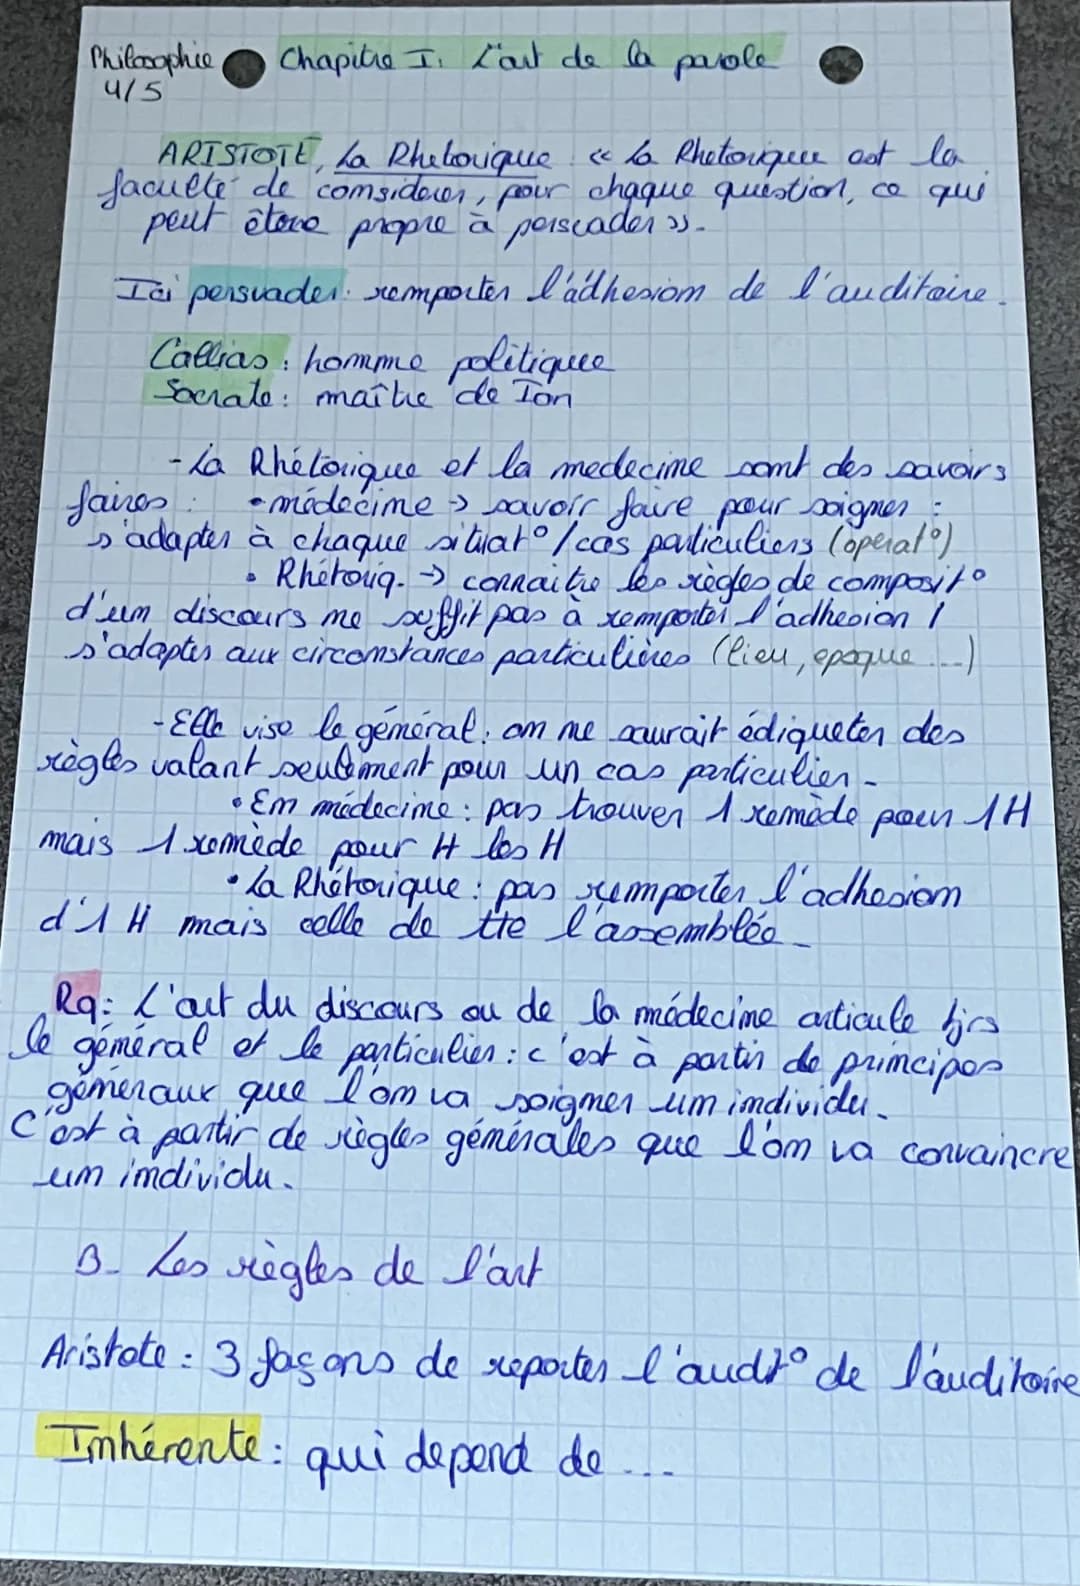 Philosophie Chapitre I: L'art de la parole
4/5
ARISTOTE, La Rhetorique : « La Rhetorique est la
faculté de considerer, pour chaque question, ce qui
peut être propre à perscader ».
Ici persuader: remporter l'adhesion de l'auditoire.
Callias : homme politique
Socrate : maître de Ion
- La Rhétorique et la medecine sont des savoirs
faires : • médecine → savoir faire pour soigner :
s'adapter à chaque situat° / cas particuliers (operat°)
• Rhétoriq. → connaitre les règles de composit°
d'un discours ne suffit pas à remporter l'adhesion /
s'adapter aux circonstances particulières (lieu, epoque ...)
- Elle vise le général : on ne saurait édiqueter des
règles valant seulement pour un cas particulier.
• En médecine : pas trouver 1 remède pour 1H
mais 1 remède pour tt les H
• La Rhétorique : pas remporter l'adhesion
d'1 H mais celle de tte l'assemblée.
Rq: L'art du discours ou de la médecine articule tjrs
le général et le particulier : c'est à partir de principes
géneraux que l'on va soigner un individu.
C'est à partir de règles générales que l'on va convaincre
un individu.
B- Les règles de l'art
Aristote : 3 façons de reporter l'audt° de l'auditoire
Inhérente : qui depend de ...